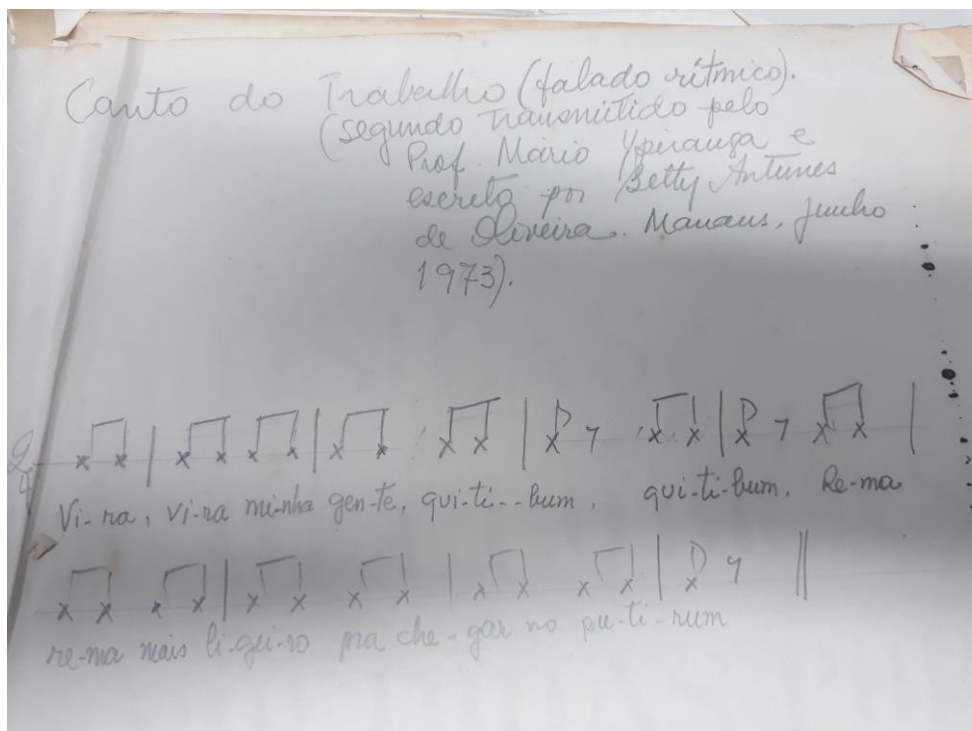 Canto do Trabalho (falado rítmico).
(segundo transmitido pelo
Prof. Mário Ypiranga e
escrito por Betty Antunes
de Oliveira. Manaus, junho
1973).
2/4
Vi-ra, vi-ra mi-nha gen-te, qui-ti--bum, qui-ti-bum, Re-ma
re-ma mais li-gei-ro pra che-gar no pu-ti-rum